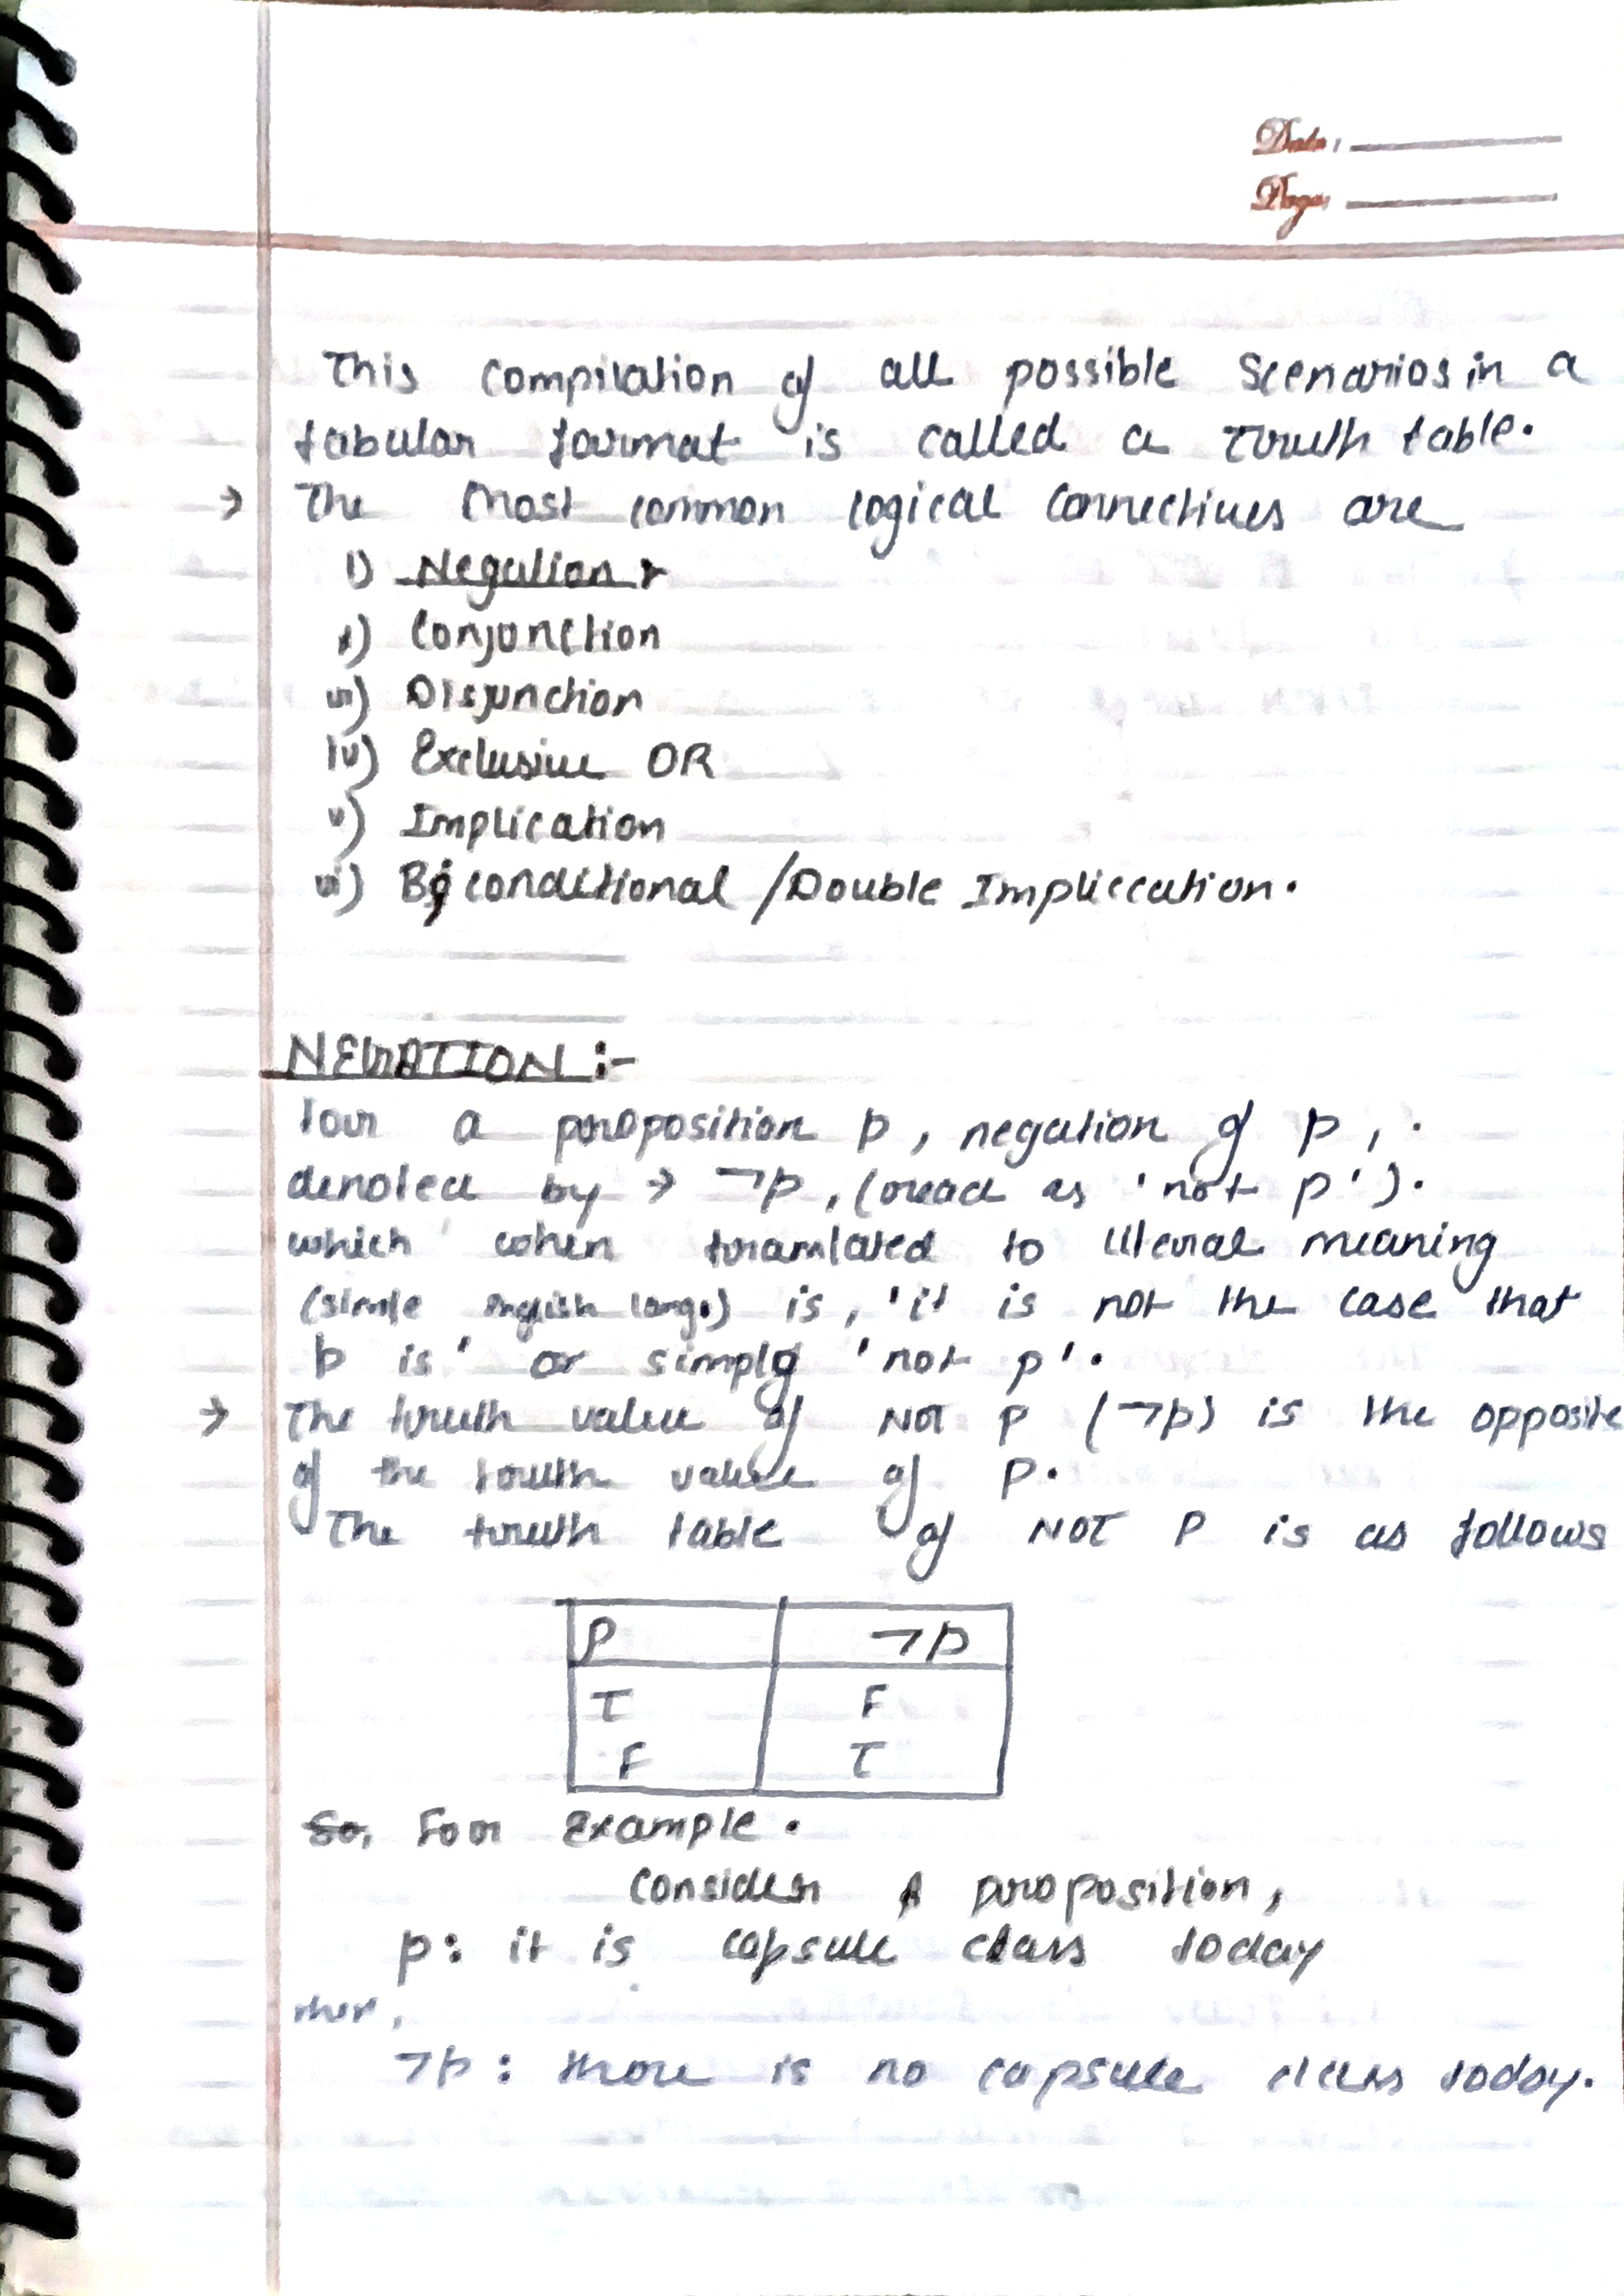 Date:
Page:
This compilation of all possible Scenarios in a
tabular format is called a Truth table.
→ The Most common logical connectives are
i) Negation
ii) Conjunction
iii) Disjunction
iv) Exclusive OR
v) Implication
vi) Bi conditional /Double Impliccation.
NEGATION :-
for a proposition p, negation of p,
denoted by → ¬p, (read as 'not p').
which when translated to literal meaning
(simple english lang.) is, 'it is not the case that
p is' or simply 'not p'.
→ The truth value of NOT p (¬p) is the opposite
of the truth value of p.
The truth table of NOT P is as follows
P ¬p
T F
F T
So, For Example.
Consider A proposition,
p: it is capsule class today
then,
¬p : there is no capsule class today.